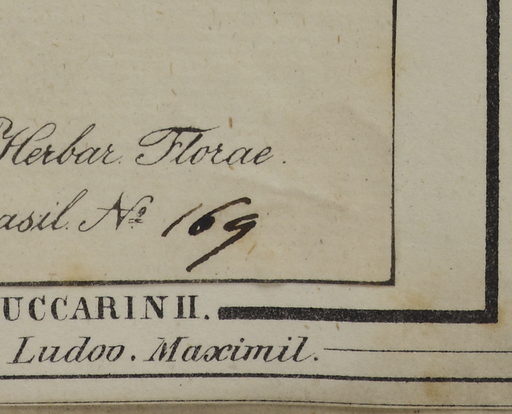 Herbar. Florae.
asil. Nº 169
UCCARINII.
Ludov. Maximil.